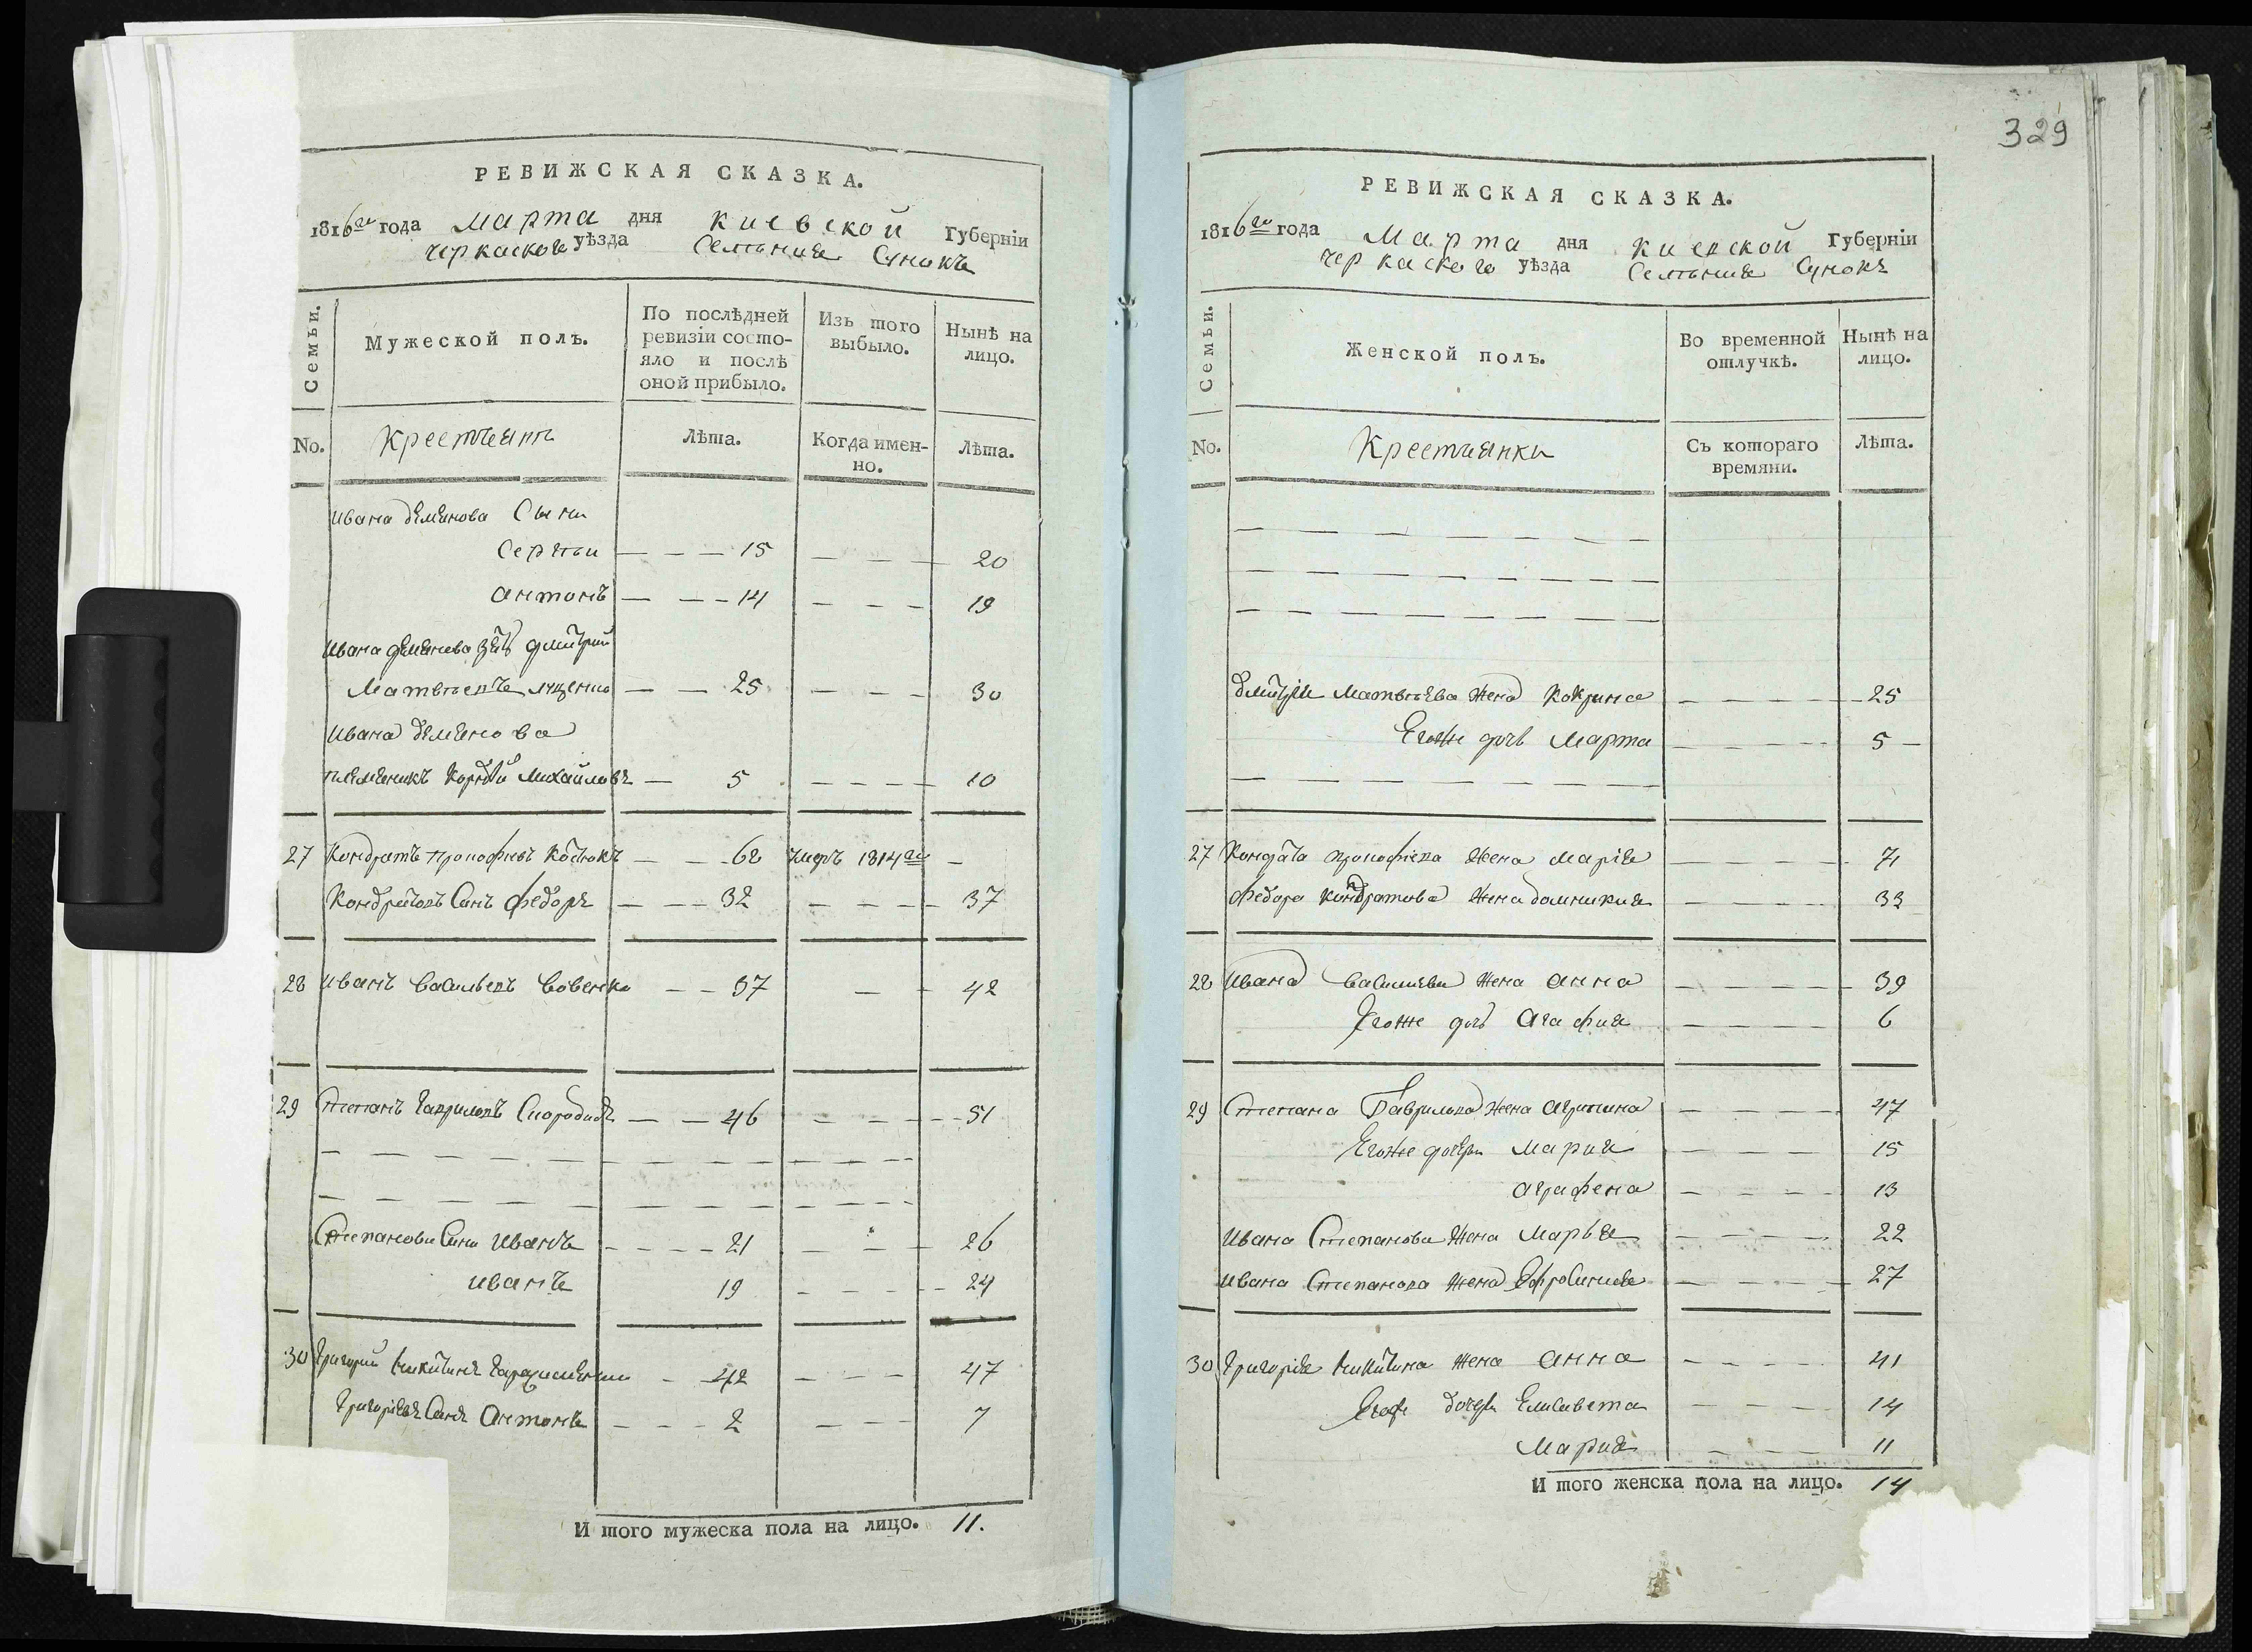 РЕВИЖСКАЯ СКАЗКА.
1816го года Марта дня Киевской Губерніи
Черкаского уѣзда Селенія Сунокъ
Семьи.
Мужеской полъ.
По послѣдней ревизіи состояло и послѣ оной прибыло.
Изъ того выбыло.
Нынѣ на лицо.
No.
Крестьянъ
Лѣта.
Когда именно.
Лѣта.
Ивана Демянова Сыни
Сергѣи — — — 15 — — — 20
Антонъ — — — 14 — — — 19
Ивана Демянова зять Дмитрий
Матвѣевъ — — 25 — — — 30
Ивана Демянова
племяникъ Михайловъ — 5 — — — — 10
27 Кондратъ Прокофиевъ Костюкъ — — 62 умеръ 1814го —
Кондратовъ Синъ Федоръ — — — 32 — — — — 37
28 Иванъ Васильевъ Вовенко — — 37 — — 42
29 Степанъ Гавриловъ — — 46 — — — 51
— — — — — — — — — — — —
— — — — — — — — — — — —
Степанови Сини Иванъ — — — — 21 — — — 26
Иванъ 19 — — — — 24
30 Григорий Никитинъ — 42 — — — 47
Григоріевъ Синъ Антонъ — — — 2 — — — 7
И того мужеска пола на лицо. 11.
329
РЕВИЖСКАЯ СКАЗКА.
1816го года Марта дня Киевской Губерніи
Черкаского уѣзда Селенія Сунокъ
Семьи.
Женской полъ.
Во временной отлучкѣ.
Нынѣ на лицо.
No.
Крестьянки
Съ котораго времяни.
Лѣта.
— — — — — — — —
— — — — — — — —
— — — — — — — —
Дмитрія Матвѣева жена — — — — 25
Егоже дочь Марта — — — — 5 —
— — — — — — — —
27 Кондрата Прокофіева жена Марія — — — — 71
Федора Кондратова жена Домникия — — — — 33
28 Ивана Василиева жена Анна — — — — 39
Егоже дочь Агафия — — — — 6
29 Степана Гаврилова жена Агрипина — — — — 47
Егоже дочери Мария — — — — 15
Аграфена — — — — 13
Ивана Степанова жена Марья — — — — 22
Ивана Степанова жена Ефросиния — — — — 27
30 Григорія Никитина жена Анна — — — — 41
Егоже дочери Елисавета — — — 14
Мария — — — — 11
И того женска пола на лицо. 14